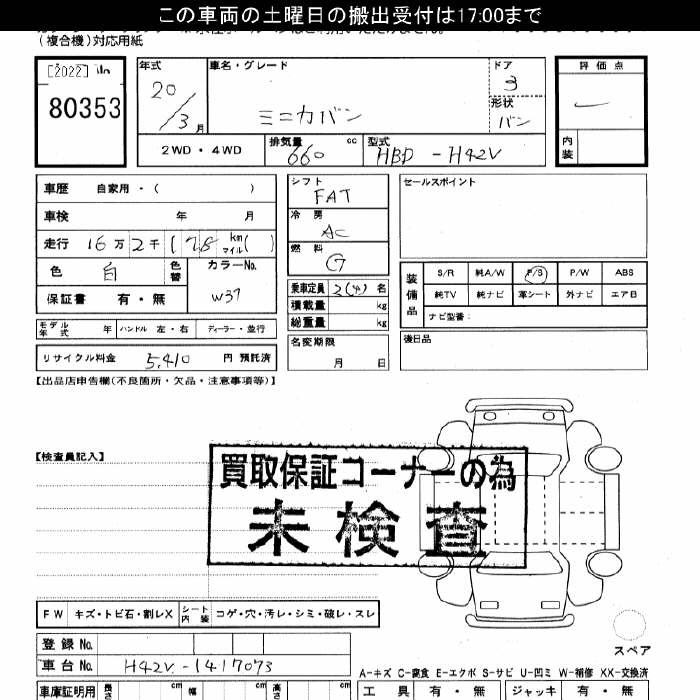 この車両の土曜日の搬出受付は17:00まで
（複合機）対応用紙
[2022]
80353
年式
20／3月
車名・グレード
ミニカバン
ドア
3
形状
バン
評価点
―
内装
2WD・4WD
排気量 660 cc
型式 HBD-H42V
車歴 自家用・（ ）
車検 年 月
走行 16万2千178 km マイル( )
色 白 色替
カラーNo. W37
保証書 有・無
シフト FAT
冷房 AC
燃料 G
乗車定員 2(4)名
積載量 kg
総重量 kg
セールスポイント
装備品
S/R 純A/W P/S P/W ABS
純TV 純ナビ 革シート 外ナビ エアB
ナビ型番:
モデル年式 年 ハンドル 左・右 ディーラー・並行
名変期限 月 日
後日品
リサイクル料金 5,410 円 預託済
【出品店申告欄(不良箇所・欠品・注意事項等)】
【検査員記入】
買取保証コーナーの為
未検査
FW キズ・トビ石・割レX シート内装 コゲ・穴・汚レ・シミ・破レ・スレ
スペア
登録No.
車台No. H42V-1417073
A-キズ C-腐食 E-エクボ S-サビ U-凹ミ W-補修 XX-交換済
車庫証明用 長さ cm 幅 cm 高さ cm
工具 有・無 ジャッキ 有・無